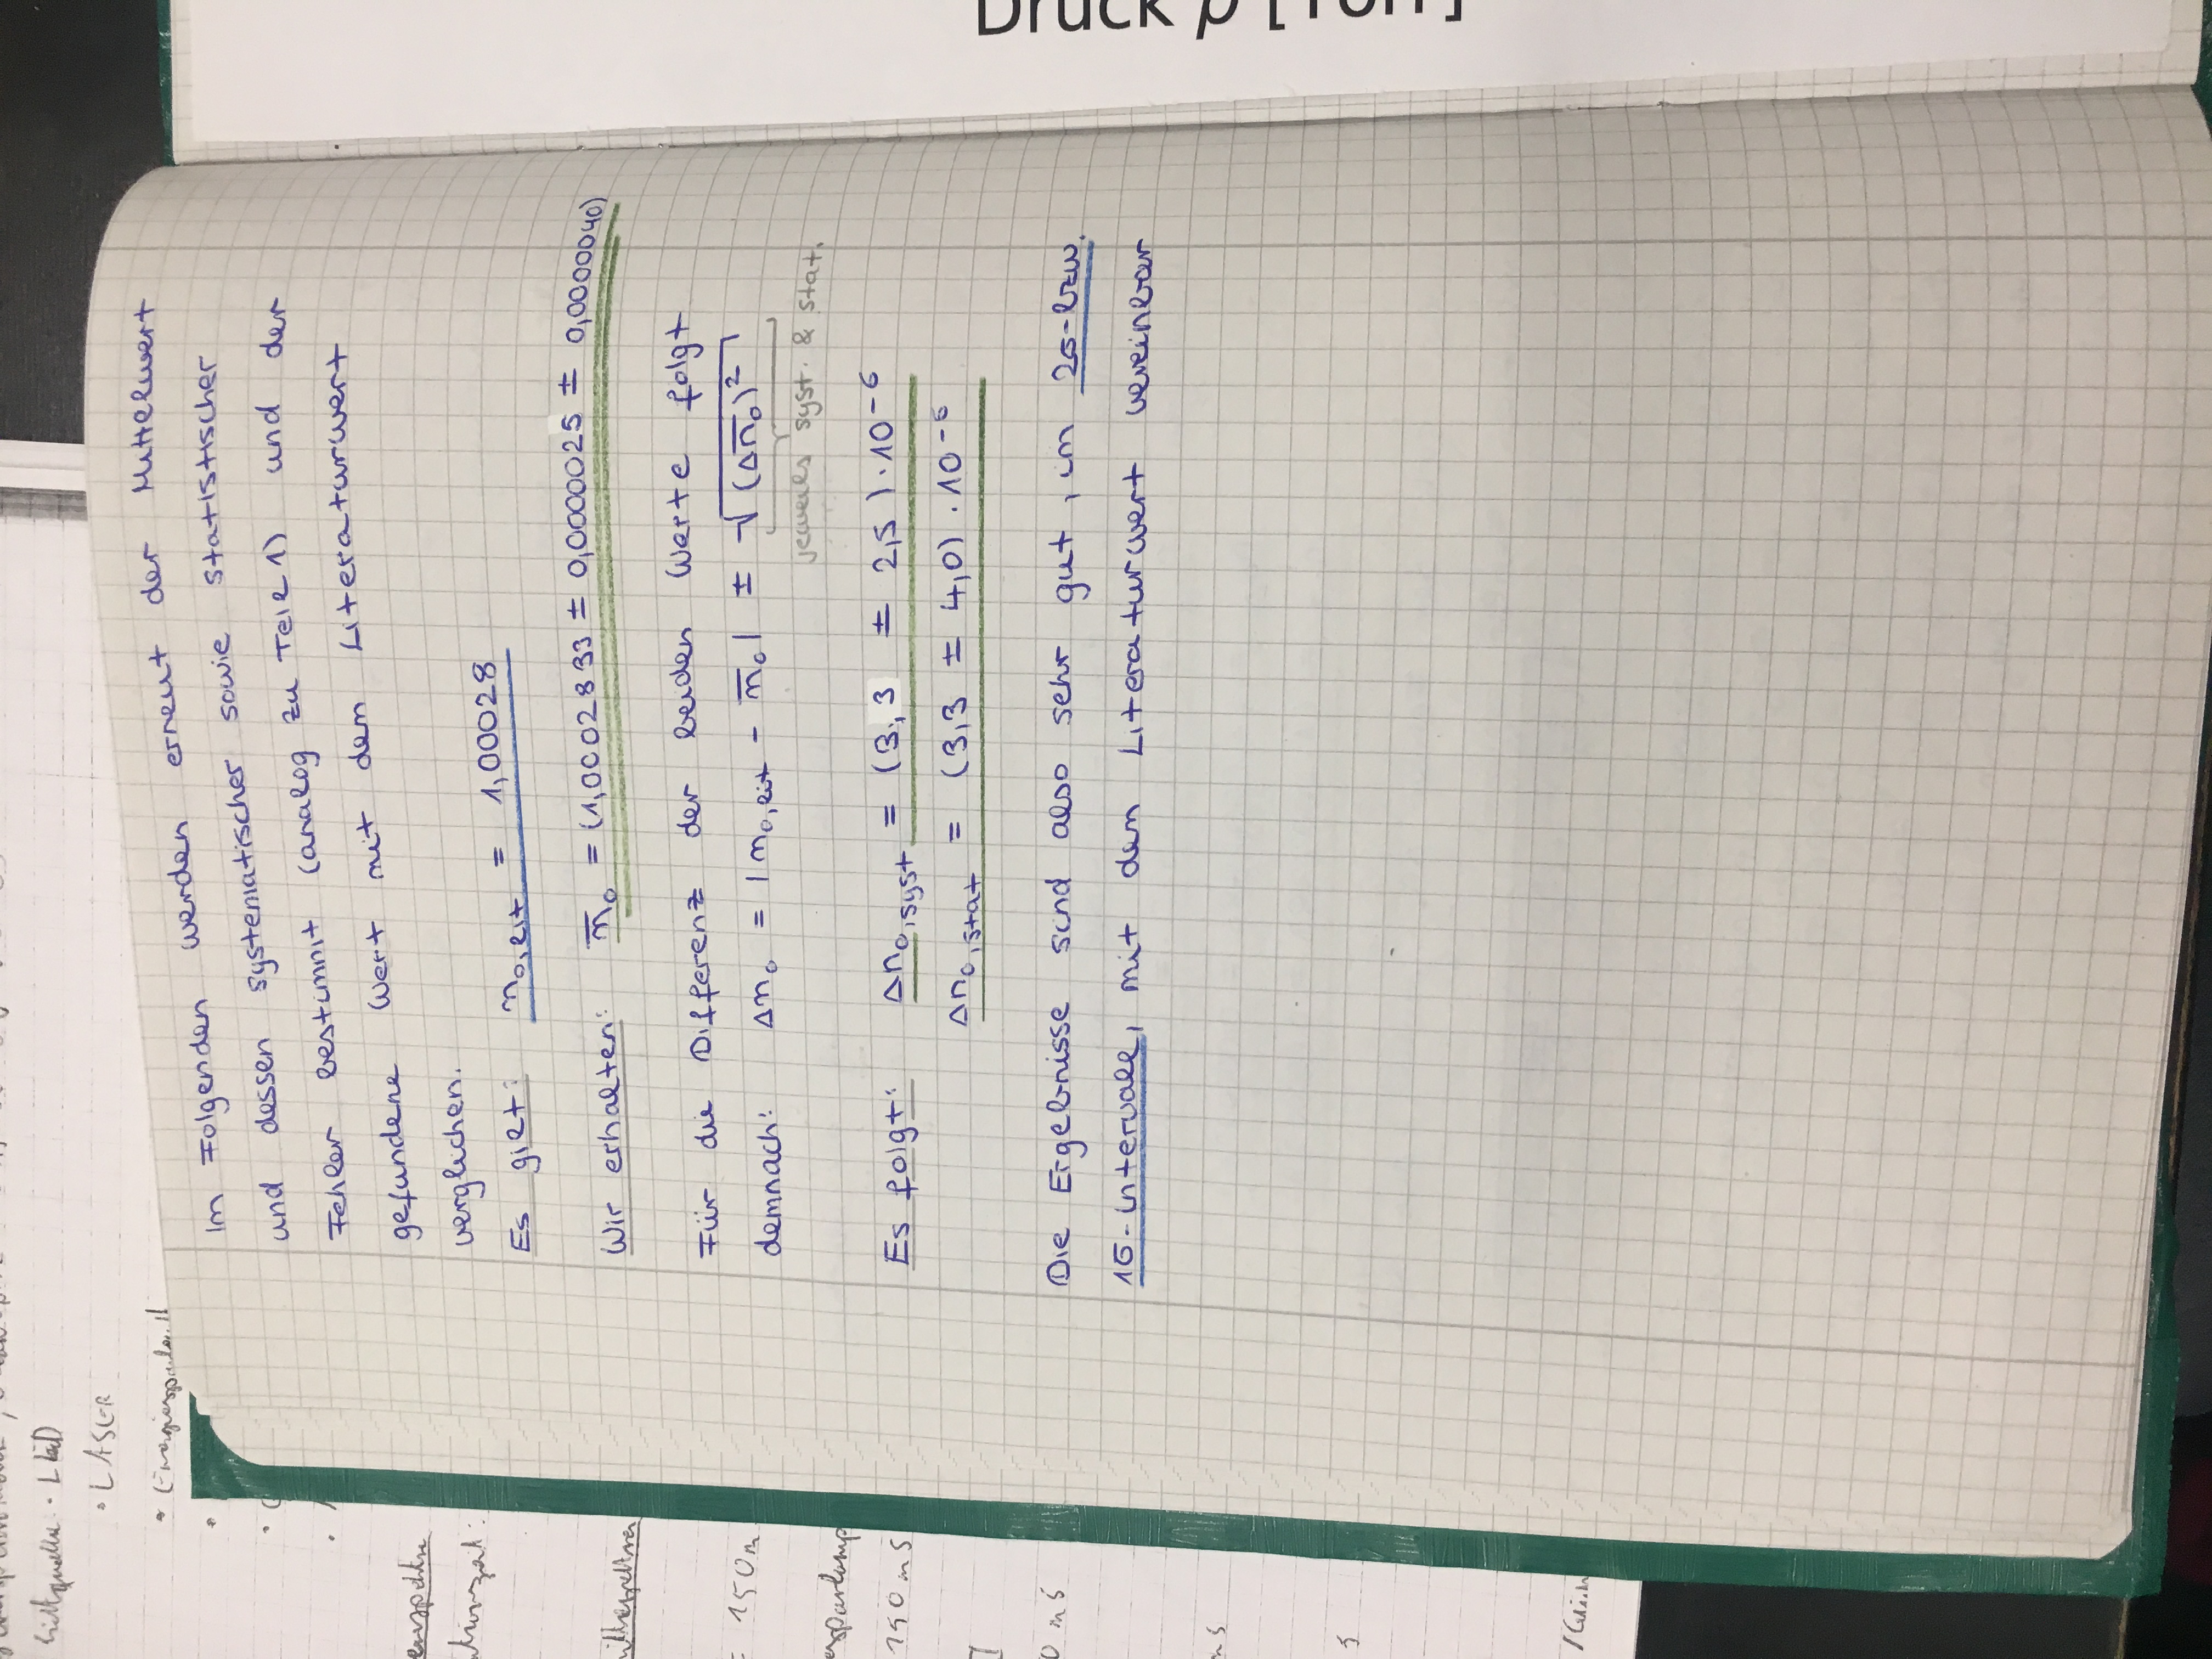 · LED
· LASER
Im Folgenden werden erneut der Mittelwert
und dessen systematischer sowie statistischer
Fehler bestimmt (analog zu Teil 1) und der
gefundene Wert mit dem Literaturwert
verglichen.
Es gilt: n₀,lit = 1,00028
Wir erhalten: n̅₀ = (1,0002833 ± 0,0000025 ± 0,0000040)
Für die Differenz der beiden Werte folgt
demnach: Δn₀ = |n₀,lit - n̅₀| ± √(Δn̅₀)²
jeweils syst. & stat.
Es folgt: Δn₀,syst = (3,3 ± 2,5) · 10⁻⁶
Δn₀,stat = (3,3 ± 4,0) · 10⁻⁶
Die Ergebnisse sind also sehr gut, im 2σ- bzw.
1σ-Intervall, mit dem Literaturwert vereinbar
= 150 m
150 ms
0 ms